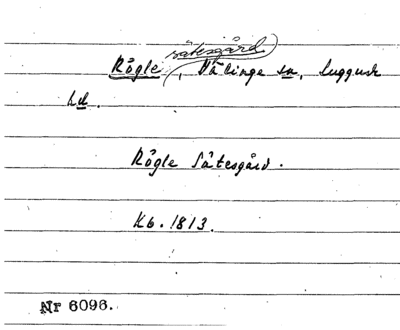 sätesgård
Rågle, Välinge sn, Luggude
hd.
Rågle Sätesgård.
Kb. 1813.
Nr 6096.